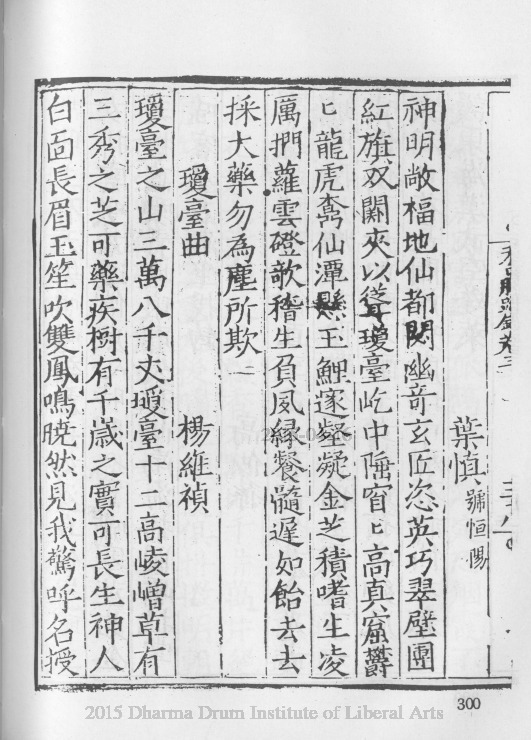 葉慎號恒陽
神明敞福地仙都閟幽竒玄匠恣英巧翠壁團
紅旗双闕夾以聳瓊臺屹中陲窅〻高真窟欝
〻龍虎鸞仙潭懸玉鯉邃壑凝金芝積嗜生凌
厲捫蘿雲磴欹稽生負風緣餐髓遲如飴去去
採大藥勿為塵所欺
瓊臺曲　楊維禎
瓊臺之山三萬八千丈瓊臺十二高崚嶒草有
三秀之芝可藥疾樹有千歳之實可長生神人
白面長眉玉笙吹雙鳳鳴曉然見我驚呼名授
300
2015 Dharma Drum Institute of Liberal Arts